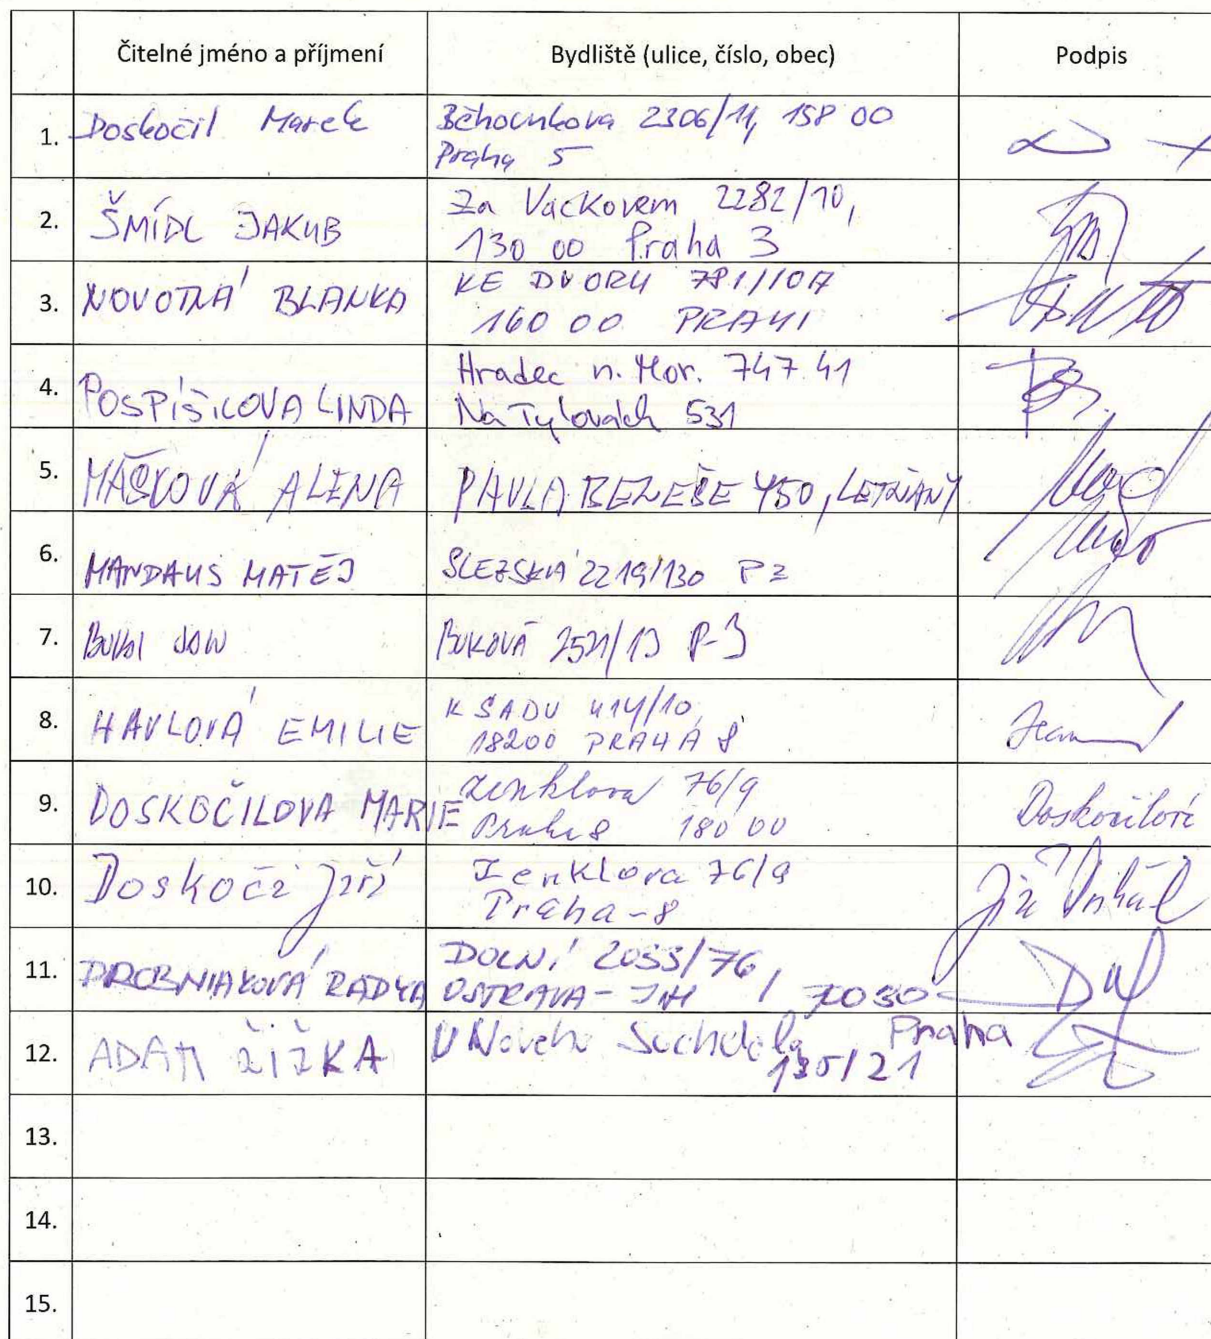 Čitelné jméno a příjmení
Bydliště (ulice, číslo, obec)
Podpis
1.
Doskočil Marek
Běhounkova 2306/11, 158 00
Praha 5
2.
ŠMÍDL JAKUB
Za Vackovem 2282/10,
130 00 Praha 3
3.
NOVOTNÁ BLANKA
KE DVORU 781/10A
160 00 PRAHA
4.
POSPÍŠILOVA LINDA
Hradec n. Mor. 747 41
Na Tylovách 531
5.
MÁŠKOVÁ ALENA
PAVLA BENEŠE 750, LETŇANY
6.
MANDAUS MATĚJ
SLEZSKÁ 2219/130 P3
7.
BUKOVÁ 2521/13 P-3
8.
HAVLOVÁ EMILIE
K SADU 414/10
18200 PRAHA 8
9.
DOSKOČILOVA MARIE
Zenklova 76/9
Praha 8 180 00
Doskočilová
10.
Doskočil Jiří
Zenklova 76/9
Praha-8
Jiří
11.
DROBNIAKOVÁ RADKA
DOLNÍ 2033/76,
OSTRAVA-JIH, 7030
12.
ADAM ŽIŽKA
U Nového Suchdola Praha
195/21
13.
14.
15.